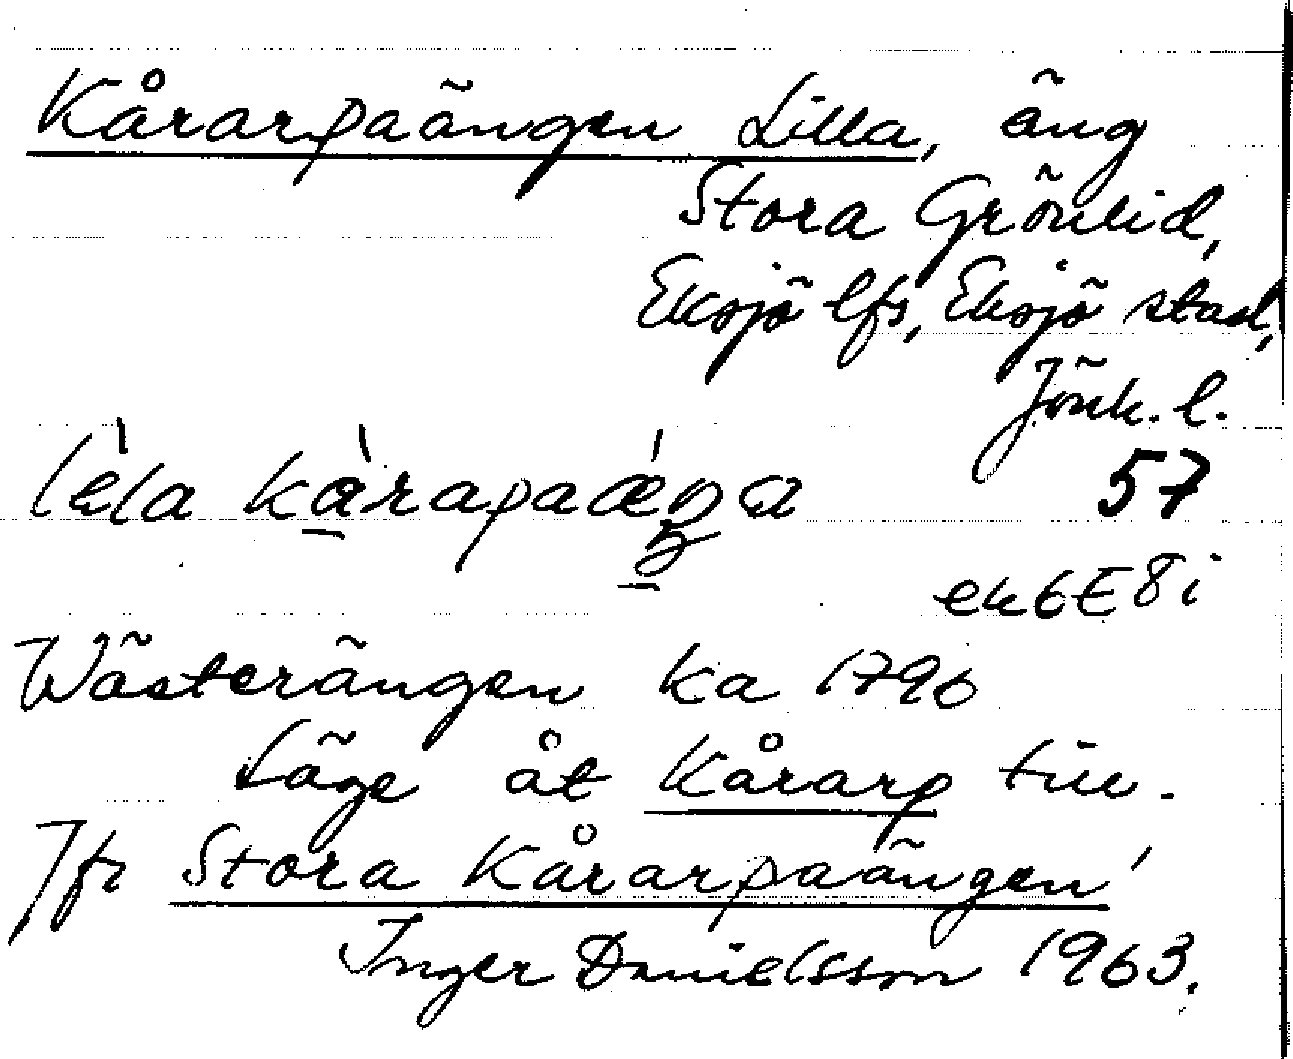 Kårarpaängen Lilla, äng
Stora Grönlid,
Eksjö lfs, Eksjö stad,
Jönk. l.
lèla kàrapaáeŋa 57
ek6E8i
Wästerängen ka 1796
Läge åt Kårarp till.
Jfr Stora Kårarpaängen
Inger Danielsson 1963.